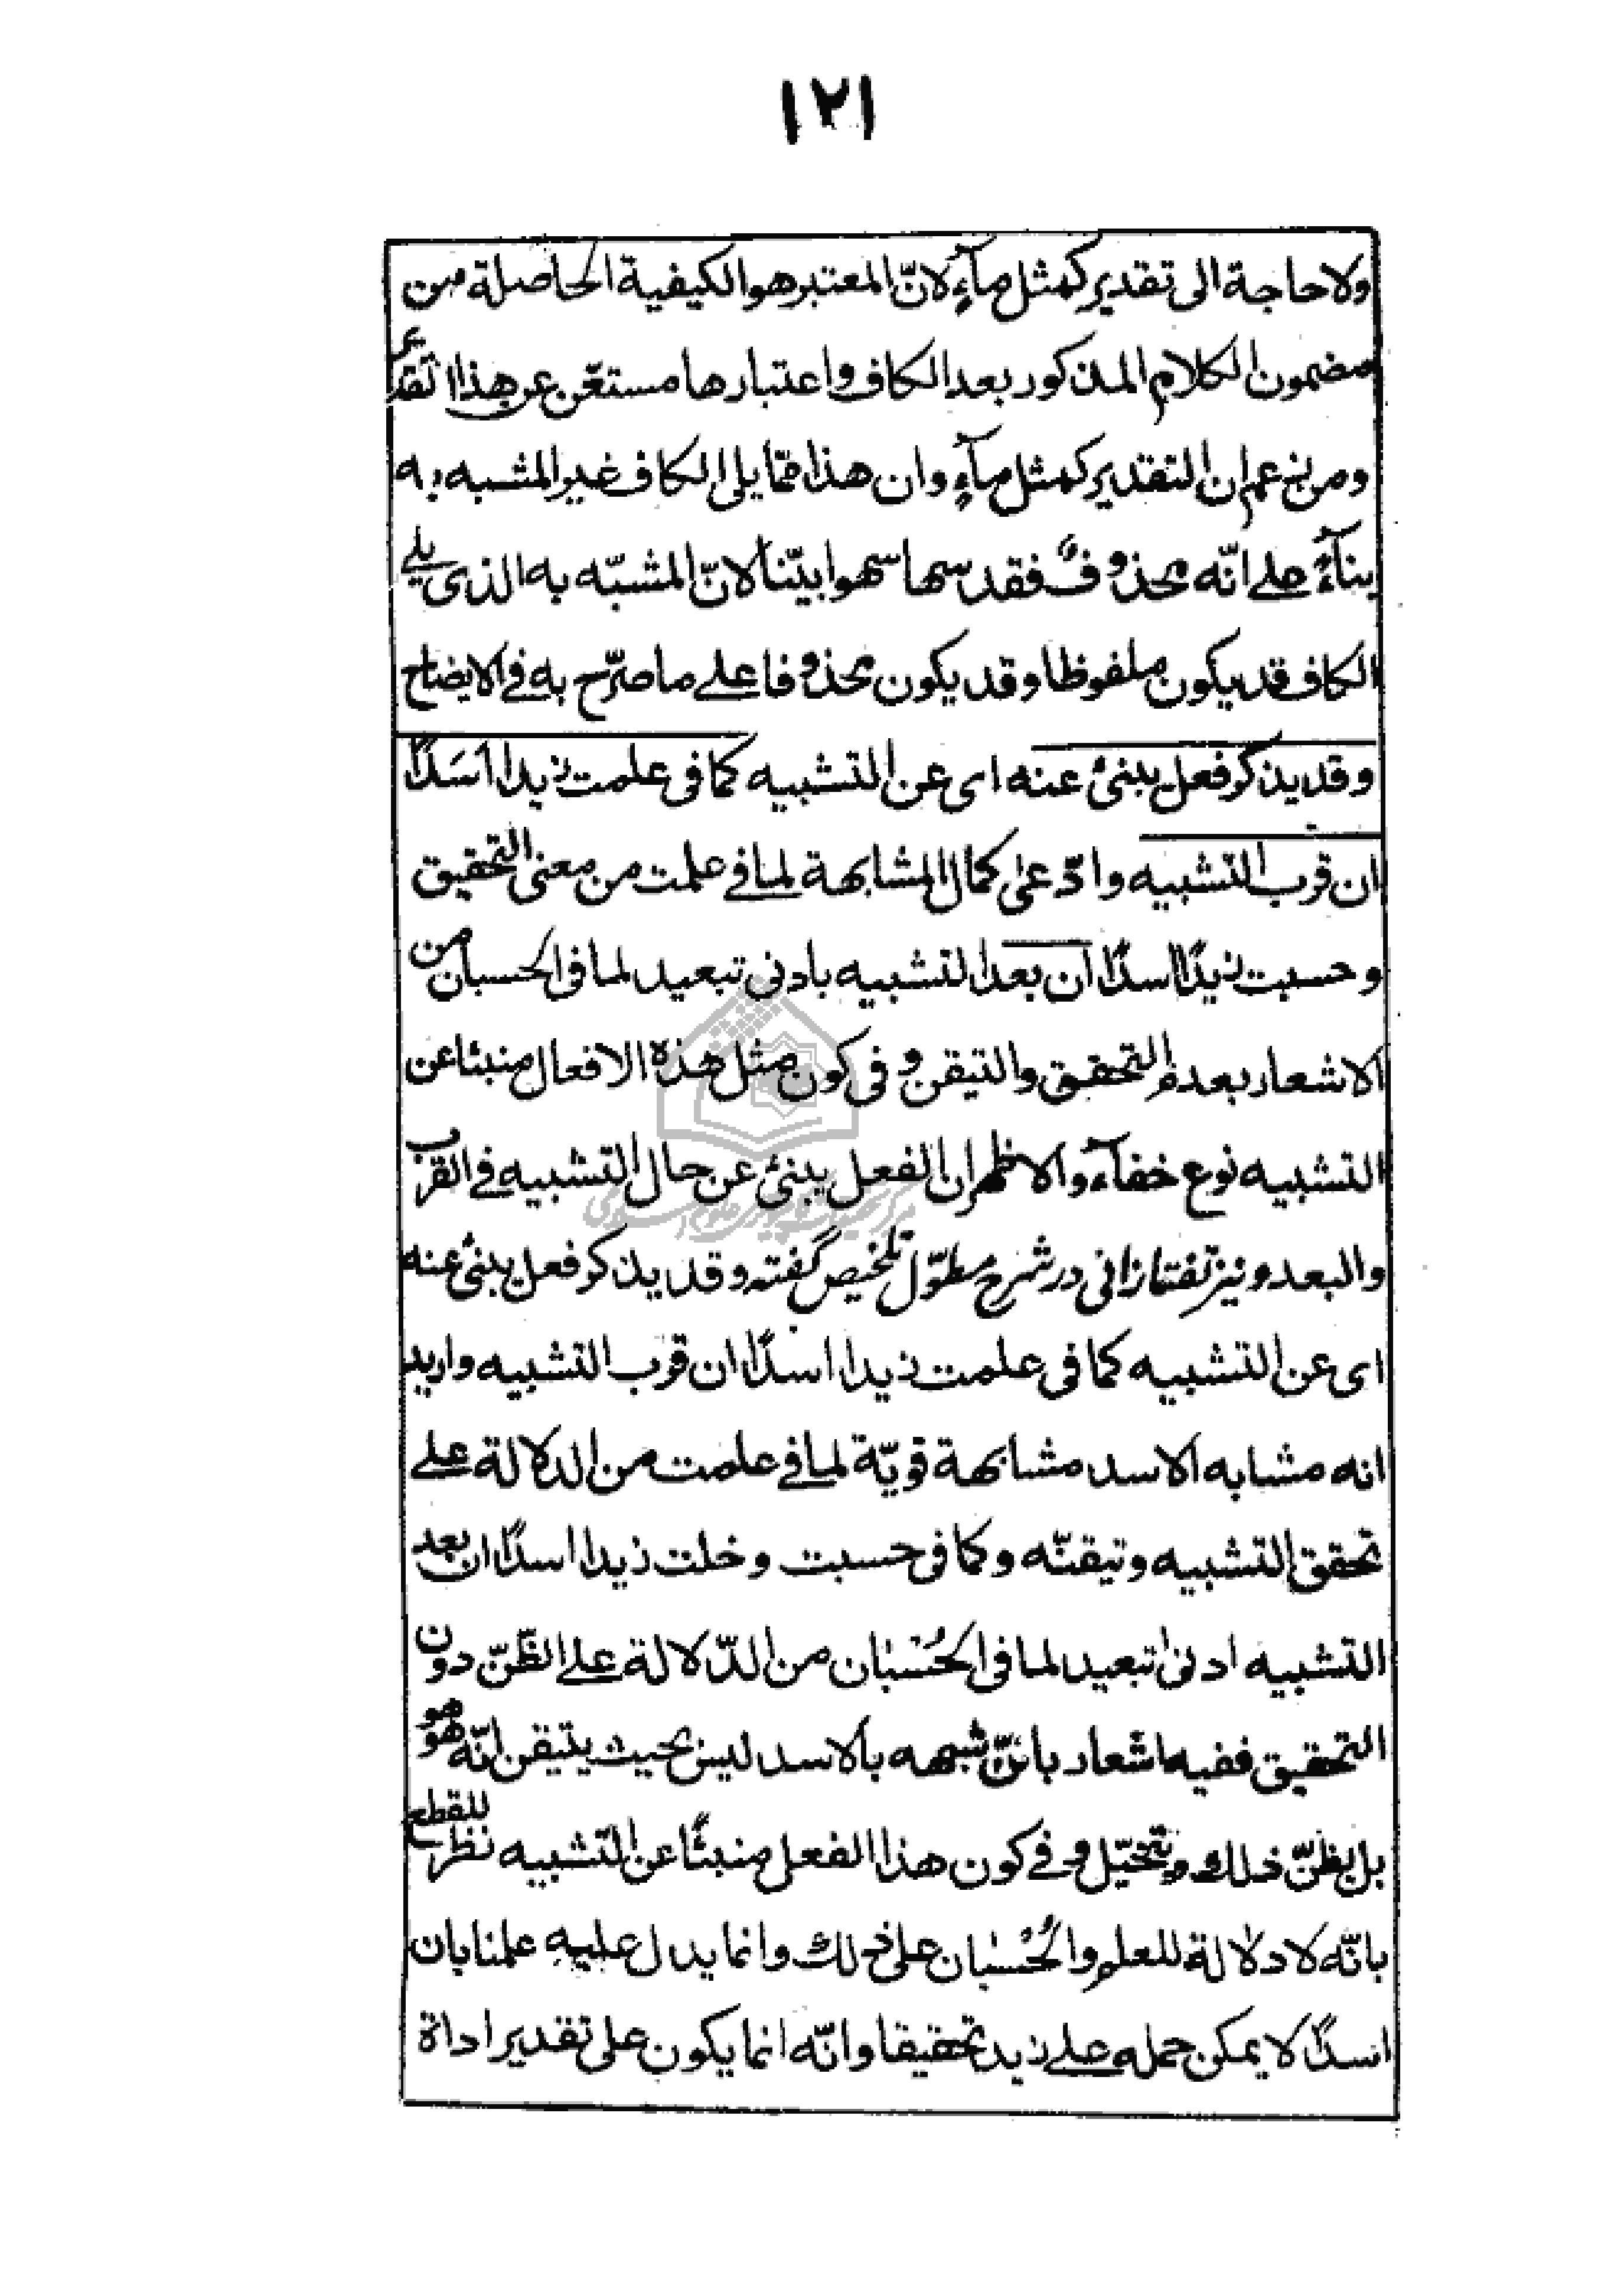 ١٢١
ولا حاجة الى تقدير كمثل مآءٍ لانّ المعتبر هو الكيفية الحاصلة من
مضمون الكلام المذكور بعد الكاف واعتبارها مستغن عن هذا التقدير
ومن زعم ان التقدير كمثل مآءٍ وان هذا ممّا يلى الكاف غير المشبه به
بنآءً على انّه محذوفٌ فقد سها سهوا بيّنا لانّ المشبّه به الذى يلى
الكاف قد يكون ملفوظا وقد يكون محذوفا على ما صرّح به فى الايضاح
وقد يذكر فعل ينبئ عنه اى عن التشبيه كما فى علمت زيدا اسَدًا
ان قرب التشبيه وادّعى كمال المشابهة لما فى علمت من معنى التحقيق
وحسبت زيدًا اسدًا ان بعد التشبيه بادنى تبعيد لما فى الحسبان من
الاشعار بعدم التحقيق والتيقن وفى كون مثل هذه الافعال منبئا عن
التشبيه نوع خفآء والاظهر ان الفعل ينبئ عن حال التشبيه فى القرب
والبعد ونيز تفتازانى در شرح مطوّل تلخيص گفته وقد يذكر فعل ينبئ عنه
اى عن التشبيه كما فى علمت زيدا اسدًا ان قرب التشبيه واريد
انه مشابه الاسد مشابهة قويّة لما فى علمت من الدلالة على
تحقق التشبيه وتيقنّه وكما فى حسبت وخلت زيدا اسدًا ان بعد
التشبيه ادنى تبعيد لما فى الحُسْبان من الدّلالة على الظّنّ دون
التحقيق ففيه اشعار بانّ شبهه بالاسد ليس بحيث يتيقن انّه هو هو
بل يظنّ ذلك ويتخيّل وفى كون هذا الفعل منبئًا عن التّشبيه نظر للقطع
بانّه لا دلالة للعلم والحُسْبان على ذلك وانما يدل عليه علمنا بان
اسدًا لا يمكن حمله على زيد تحقيقا وانّه انما يكون على تقدير اداة